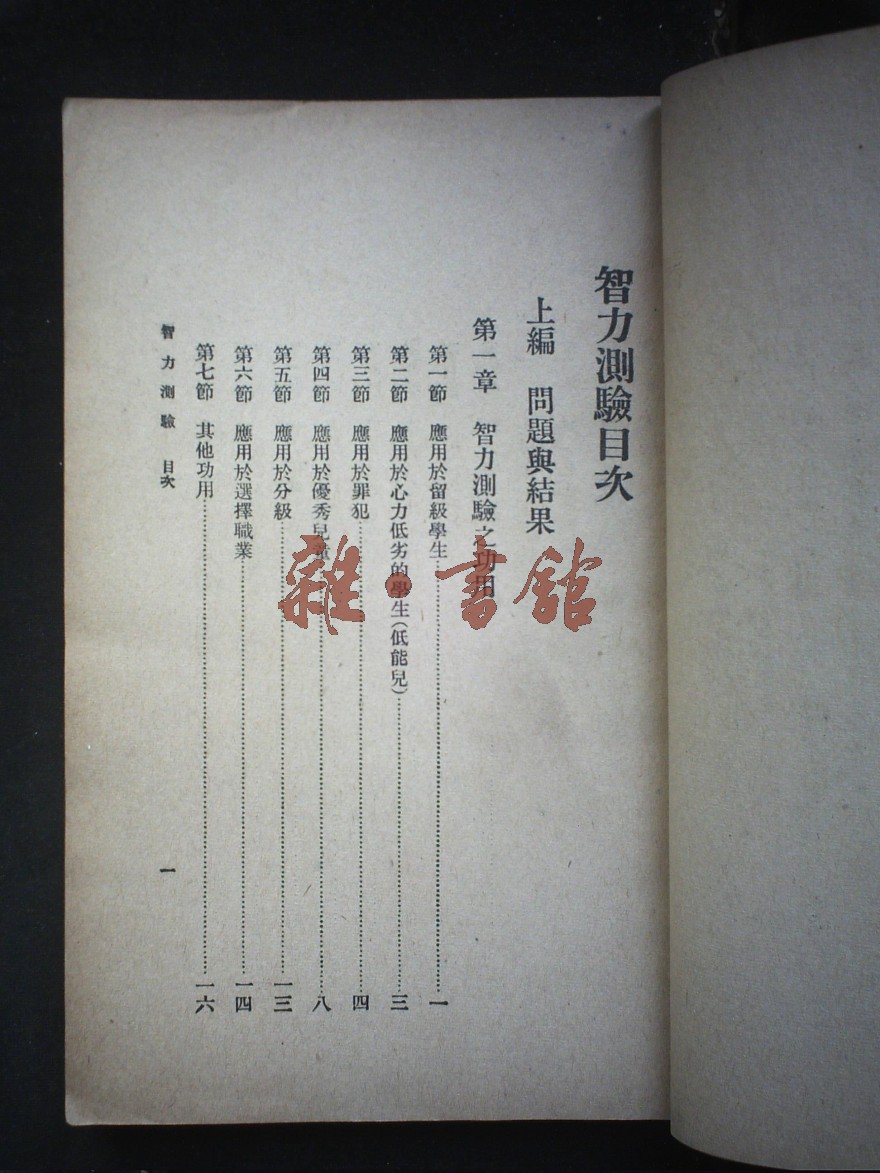 智力測驗目次
上編　問題與結果
第一章　智力測驗之功用
第一節　應用於留級學生……一
第二節　應用於心力低劣的學生（低能兒）……三
第三節　應用於罪犯……四
第四節　應用於優秀兒童……八
第五節　應用於分級……一三
第六節　應用於選擇職業……一四
第七節　其他功用……一六
智力測驗　目次　一
雜·書館